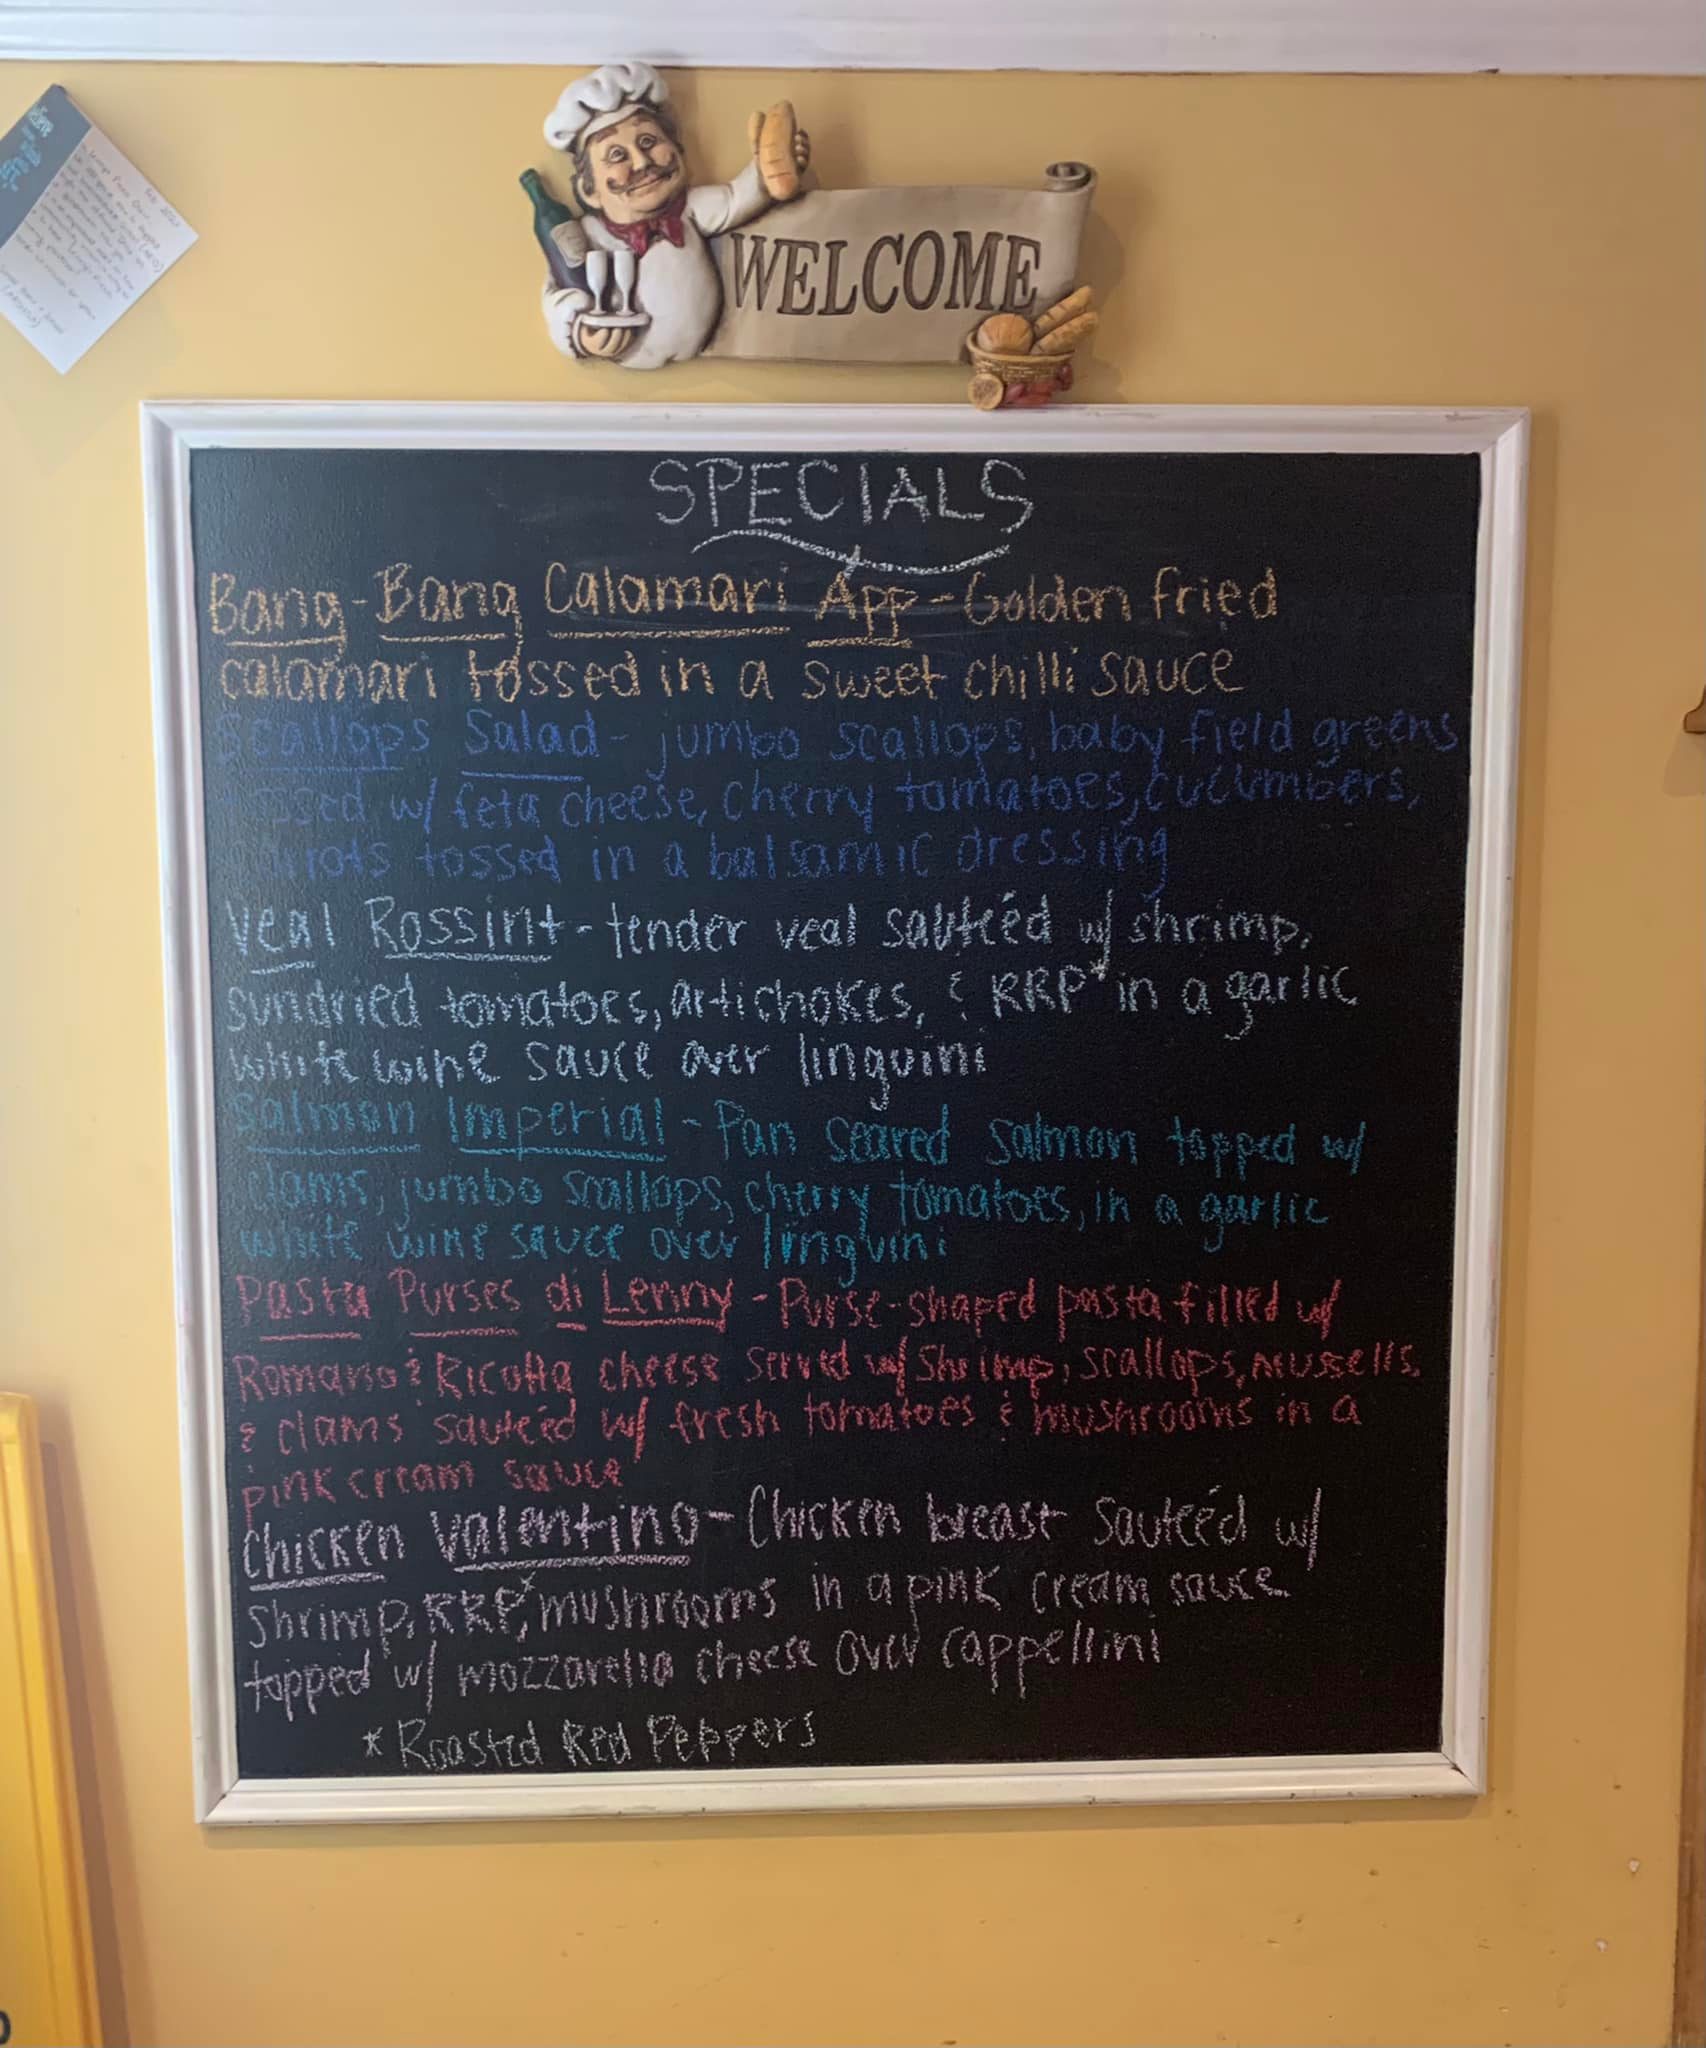 WELCOME
SPECIALS
Bang-Bang Calamari App - Golden fried
calamari tossed in a sweet chilli sauce
Scallops Salad - jumbo scallops, baby field greens
tossed w/ feta cheese, cherry tomatoes, cucumbers,
carrots tossed in a balsamic dressing
Veal Rossini - tender veal sauteéd w/ shrimp,
sundried tomatoes, artichokes, & RRP* in a garlic
white wine sauce over linguini
Salmon Imperial - Pan seared salmon topped w/
clams, jumbo scallops, cherry tomatoes, in a garlic
white wine sauce over linguini
Pasta Purses di Lenny - Purse-shaped pasta filled w/
Romano & Ricotta cheese served w/ shrimp, scallops, mussels,
& clams sauteéd w/ fresh tomatoes & mushrooms in a
pink cream sauce
Chicken Valentino - Chicken breast sauteéd w/
shrimp, RRP*, mushrooms in a pink cream sauce
topped w/ mozzarella cheese over cappellini
* Roasted Red Peppers